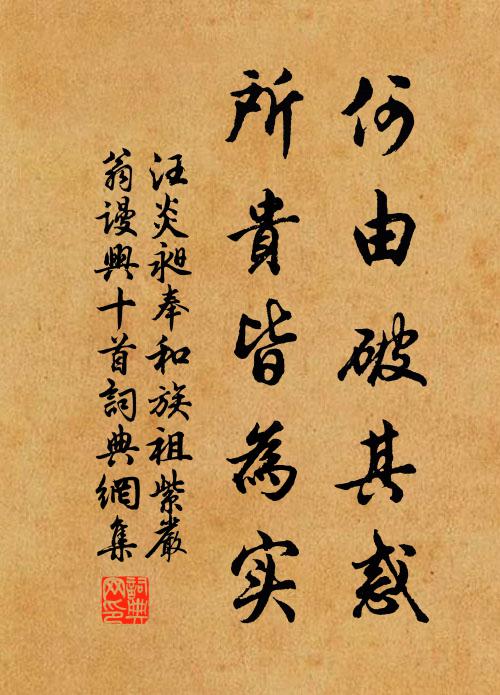 何由破其惑
所貴皆為实
汪炎昶奉和族祖紫巖
翁谩興十首詞典網集
詞典网印